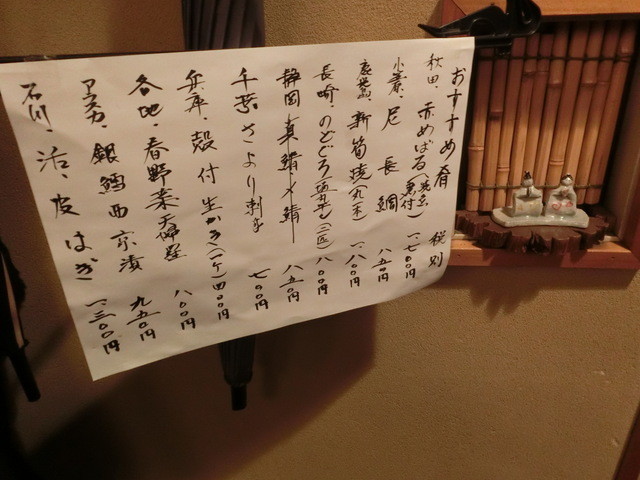 おすすめ肴 税別
秋田、赤めばる 一、七〇〇円
尾長鯛 八五〇円
新筍焼(丸一本) 一、八〇〇円
長崎、のどぐろ (一匹) 一、八〇〇円
静岡、真鯖〆鯖 八五〇円
千葉、さより刺身 七〇〇円
兵庫、殻付生かき(一ケ) 四〇〇円
各地、春野菜天婦羅 八〇〇円
アラスカ、銀鱈西京漬 九五〇円
石川、活、皮はぎ 一、三〇〇円